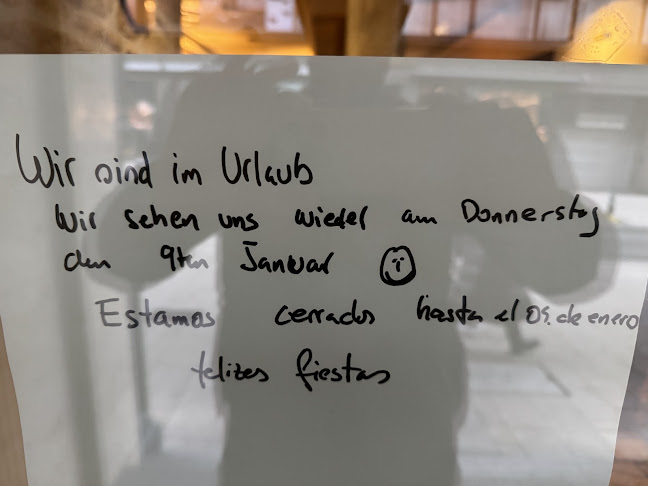 Wir sind im Urlaub
Wir sehen uns wieder am Donnerstag
den 9ten Januar
Estamos cerrados hasta el 09. de enero
felizes fiestas